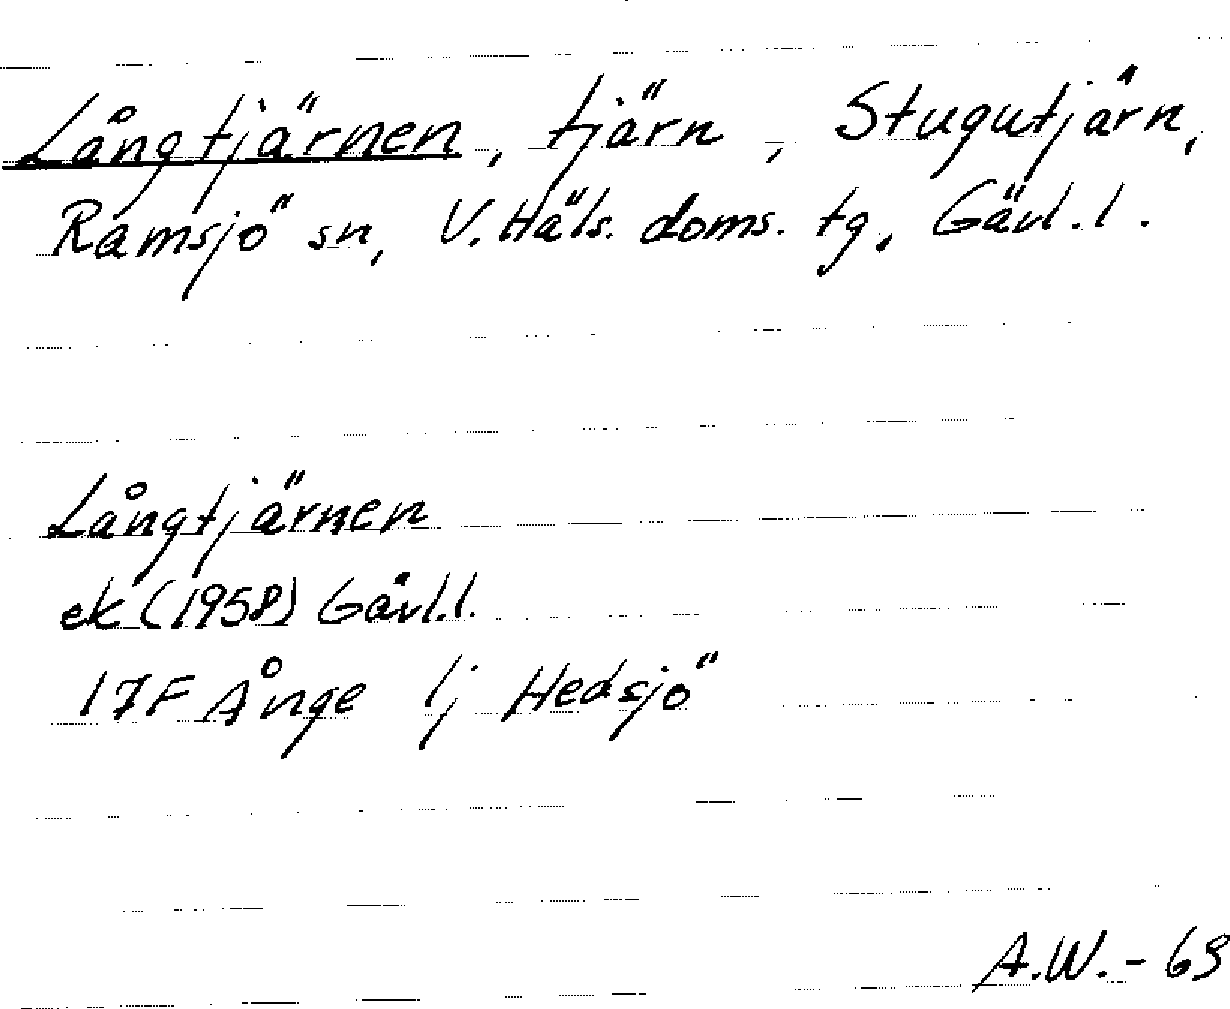 Långtjärnen, tjärn, Stugutjärn,
Ramsjö sn, V. Häls. doms. tg, Gävl. l.
Långtjärnen
ek (1958) Gävl. l.
17F Ånge 1j Hedsjö
A.W. - 69